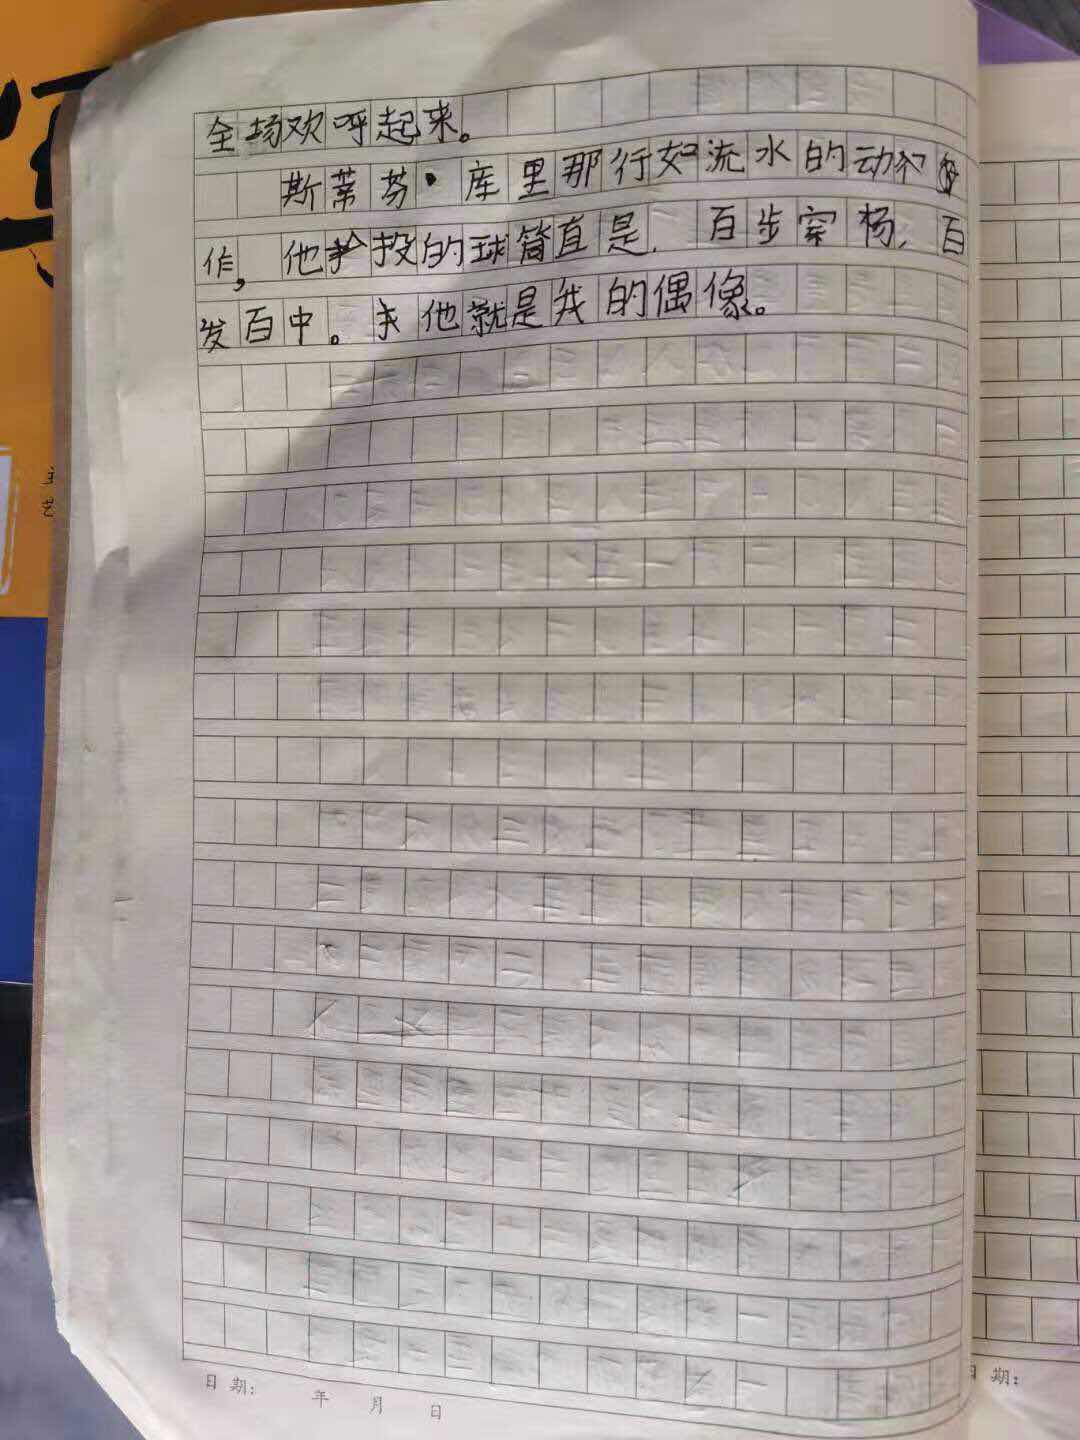 全场欢呼起来。
斯蒂芬·库里那行如流水的动
作，他投的球简直是，百步穿杨，百
发百中。他就是我的偶像。
日期：　年　月　日
日期：
主
艺